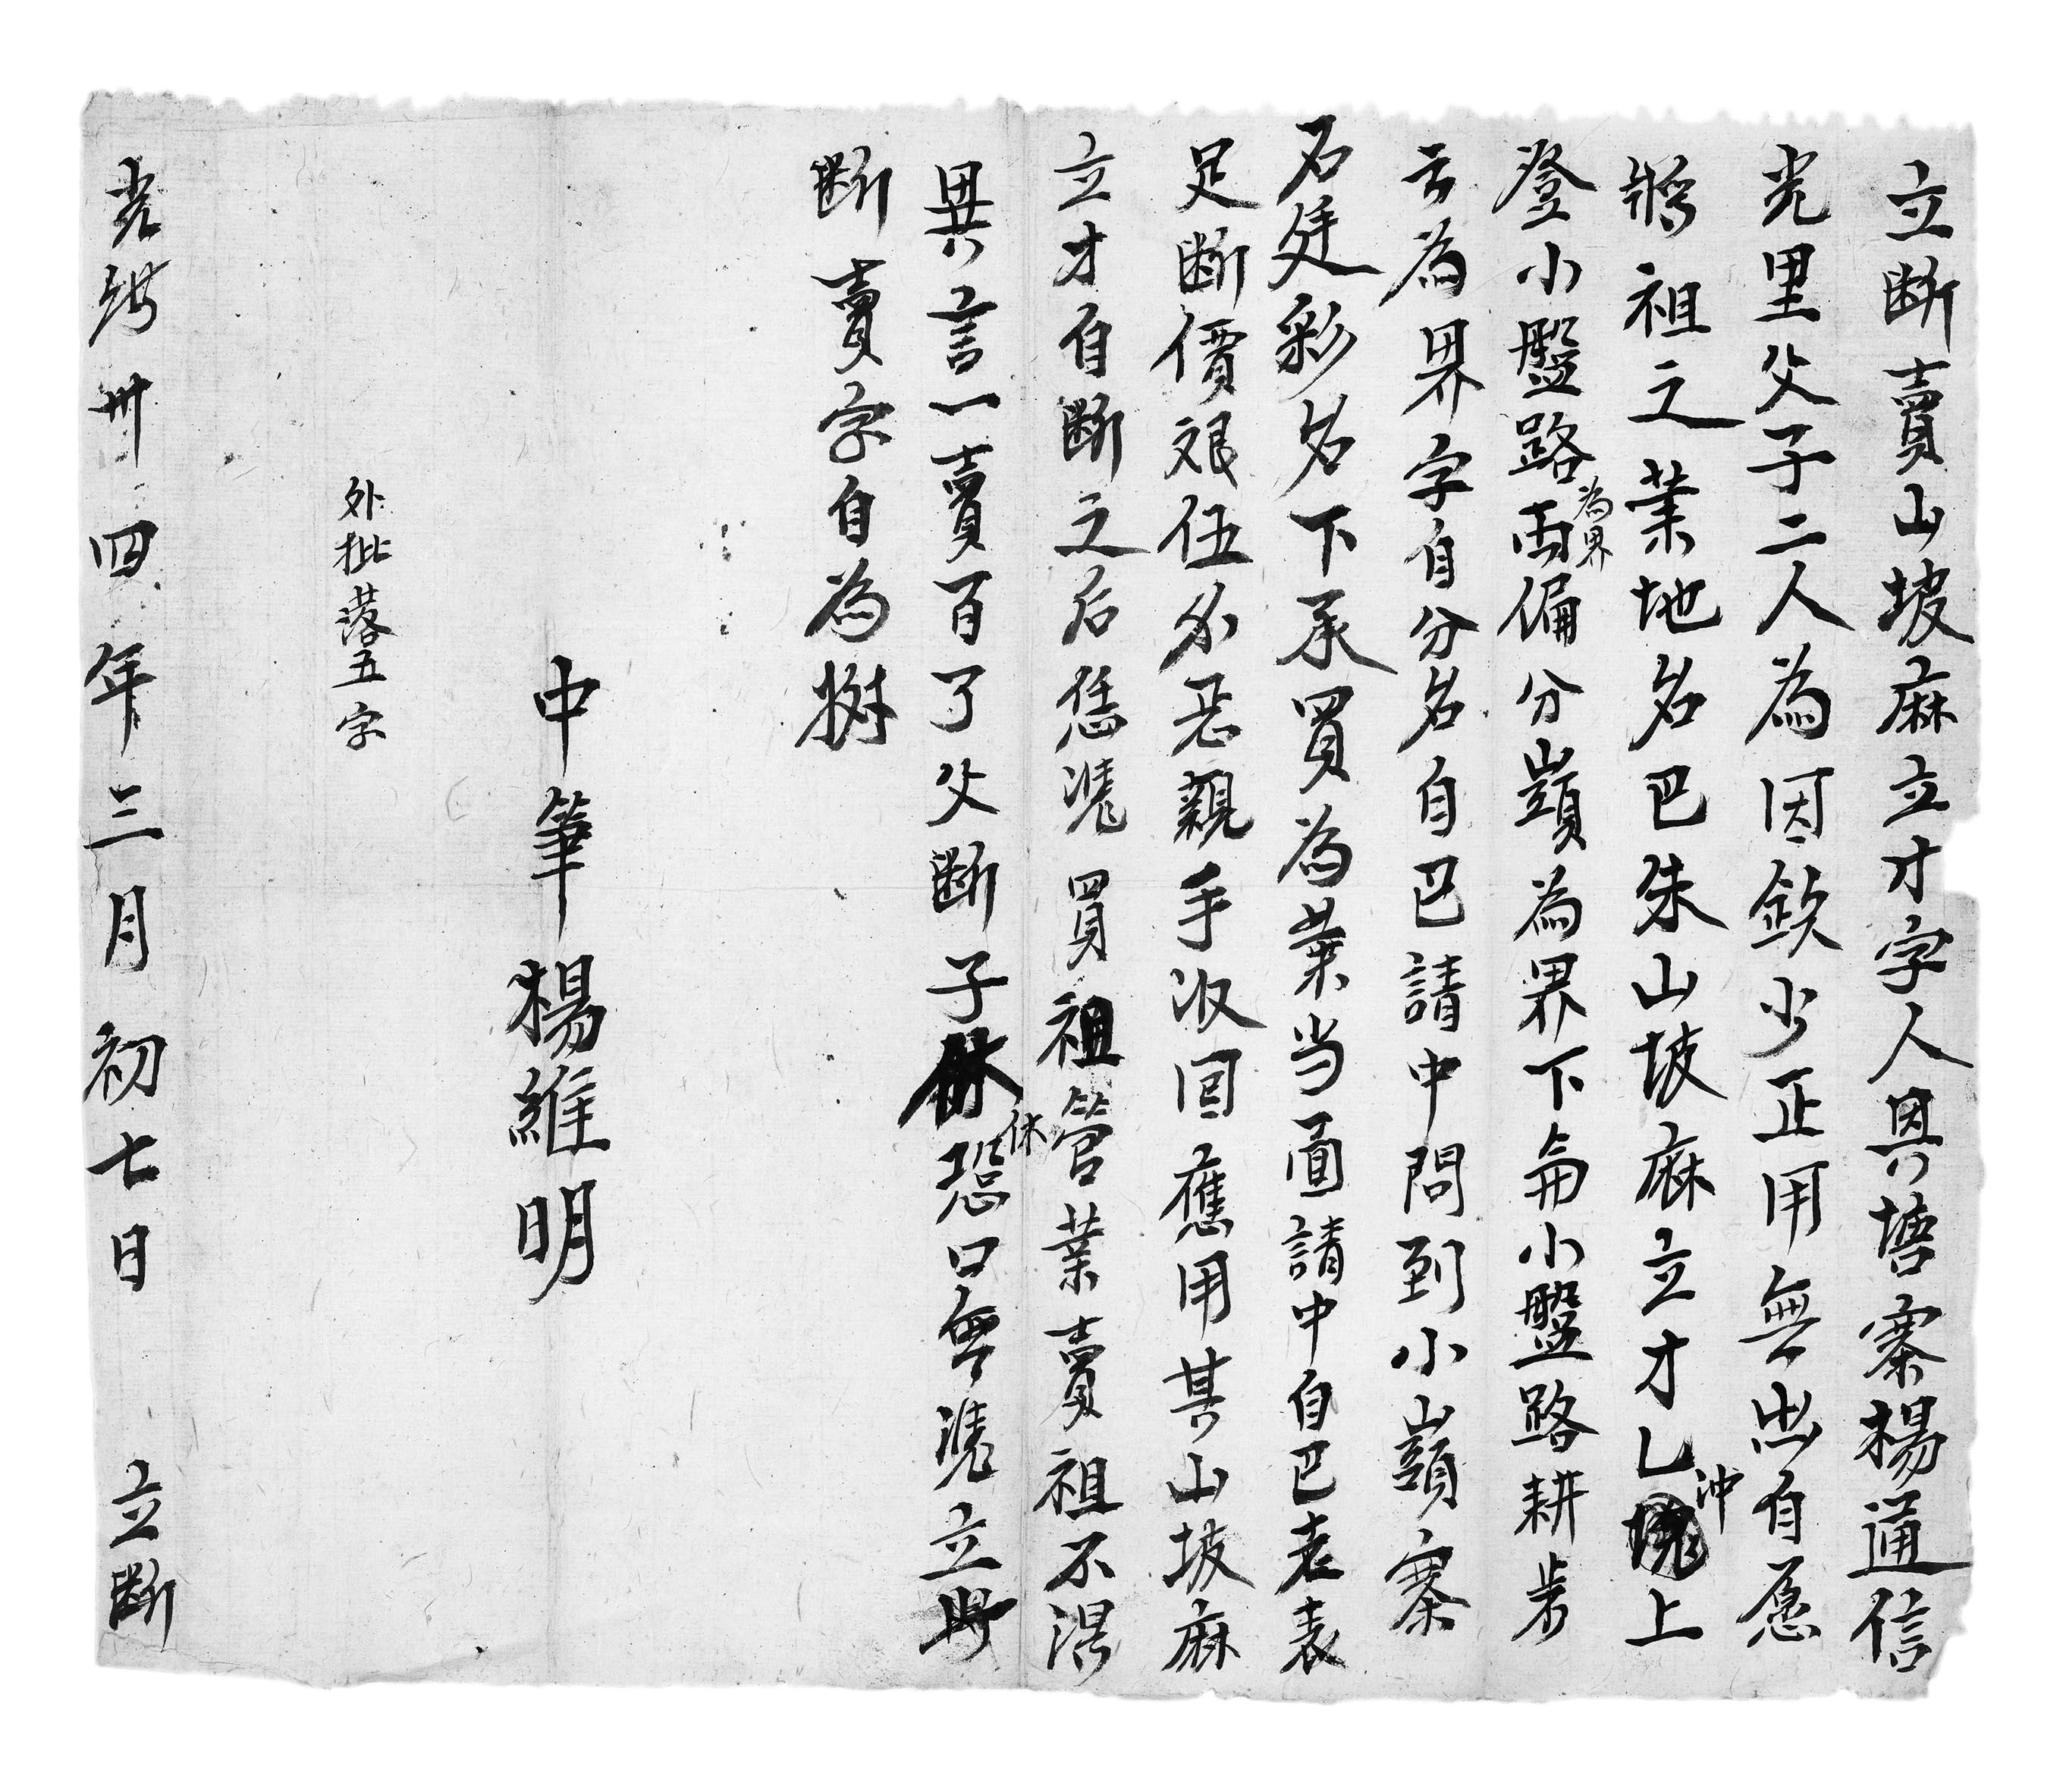 立断賣山坡麻立才字人具塘寨楊通信
光里父子二人為因欽少正用無出自愿
將祖之業地名巴朱山坡麻立才乚冲上
登小盤路為界兩偏分嶺為界下侖小盤路耕步
云為界字自分名自己請中問到小嶺寨
石廷彩名下承買為業当面請中自己老表
足断價艮伍分悉親手収回應用其山坡麻
立才自断之后恁凴買祖管業賣祖不淂
異言一賣百了父断子休恐口無凴立
断賣字自為㨿
中筆楊維明
外批落五字
光緒卅四年三月初七日 立断